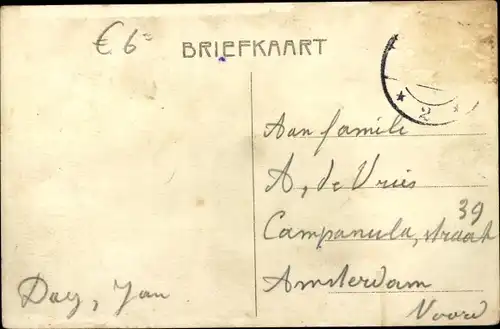 € 6=
BRIEFKAART
* 2 *
Aan famili
A, de Vries
39
Campanula, straat
Amsterdam
Noord
Dag, Jan